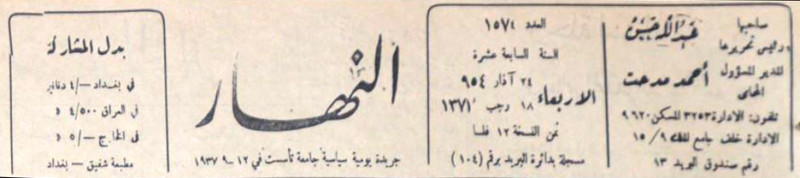 صاحبها
ورئيس تحريرها
عبد الله حسن
المدير المسؤول
المحامي
أحمد مدحت
تلفون: الادارة ٣٢٥٣ المسكن ٩٦٢٠
الادارة خلف جامع ١٥/٩
رقم صندوق البريد ١٣
العدد ١٥٧٤
السنة السابعة عشرة
الاربعاء
٢٤ آذار ٩٥٤
١٨ رجب ١٣٧١
ثمن النسخة ١٢ فلسا
مسجلة بدائرة البريد برقم (١٠٤)
النهار
جريدة يومية سياسية جامعة تأسست في ١٢-٩-١٩٣٧
بدل المشاركة
في بغداد -/٤ دنانير
في العراق ٤/٥٠٠ »
في الخارج -/٥ »
مطبعة شفيق - بغداد